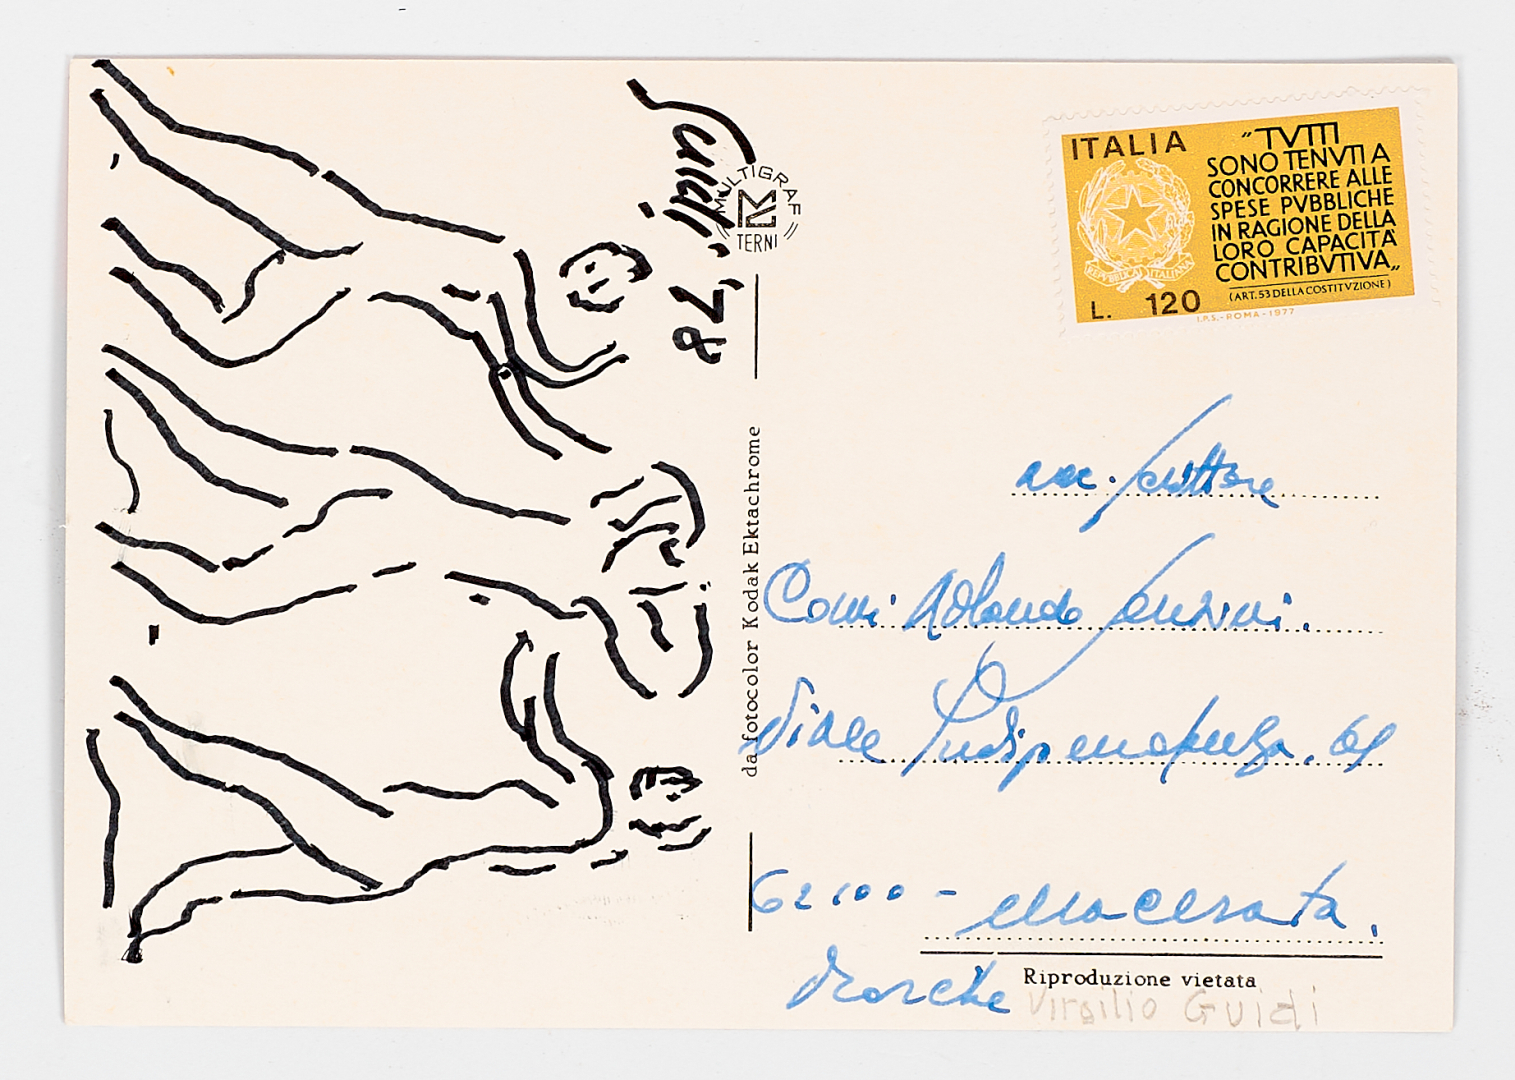 Guidi '78
MULTIGRAF
TERNI
da fotocolor Kodak Ektachrome
ITALIA
"TVTTI
SONO TENVTI A
CONCORRERE ALLE
SPESE PVBBLICHE
IN RAGIONE DELLA
LORO CAPACITÀ
CONTRIBVTIVA„
(ART. 53 DELLA COSTITVZIONE)
REPVBBLICA ITALIANA
L. 120
I.P.S.-ROMA-1977
Viale Indipendenza.
62100 - Macerata.
Marche
Riproduzione vietata
Virgilio Guidi